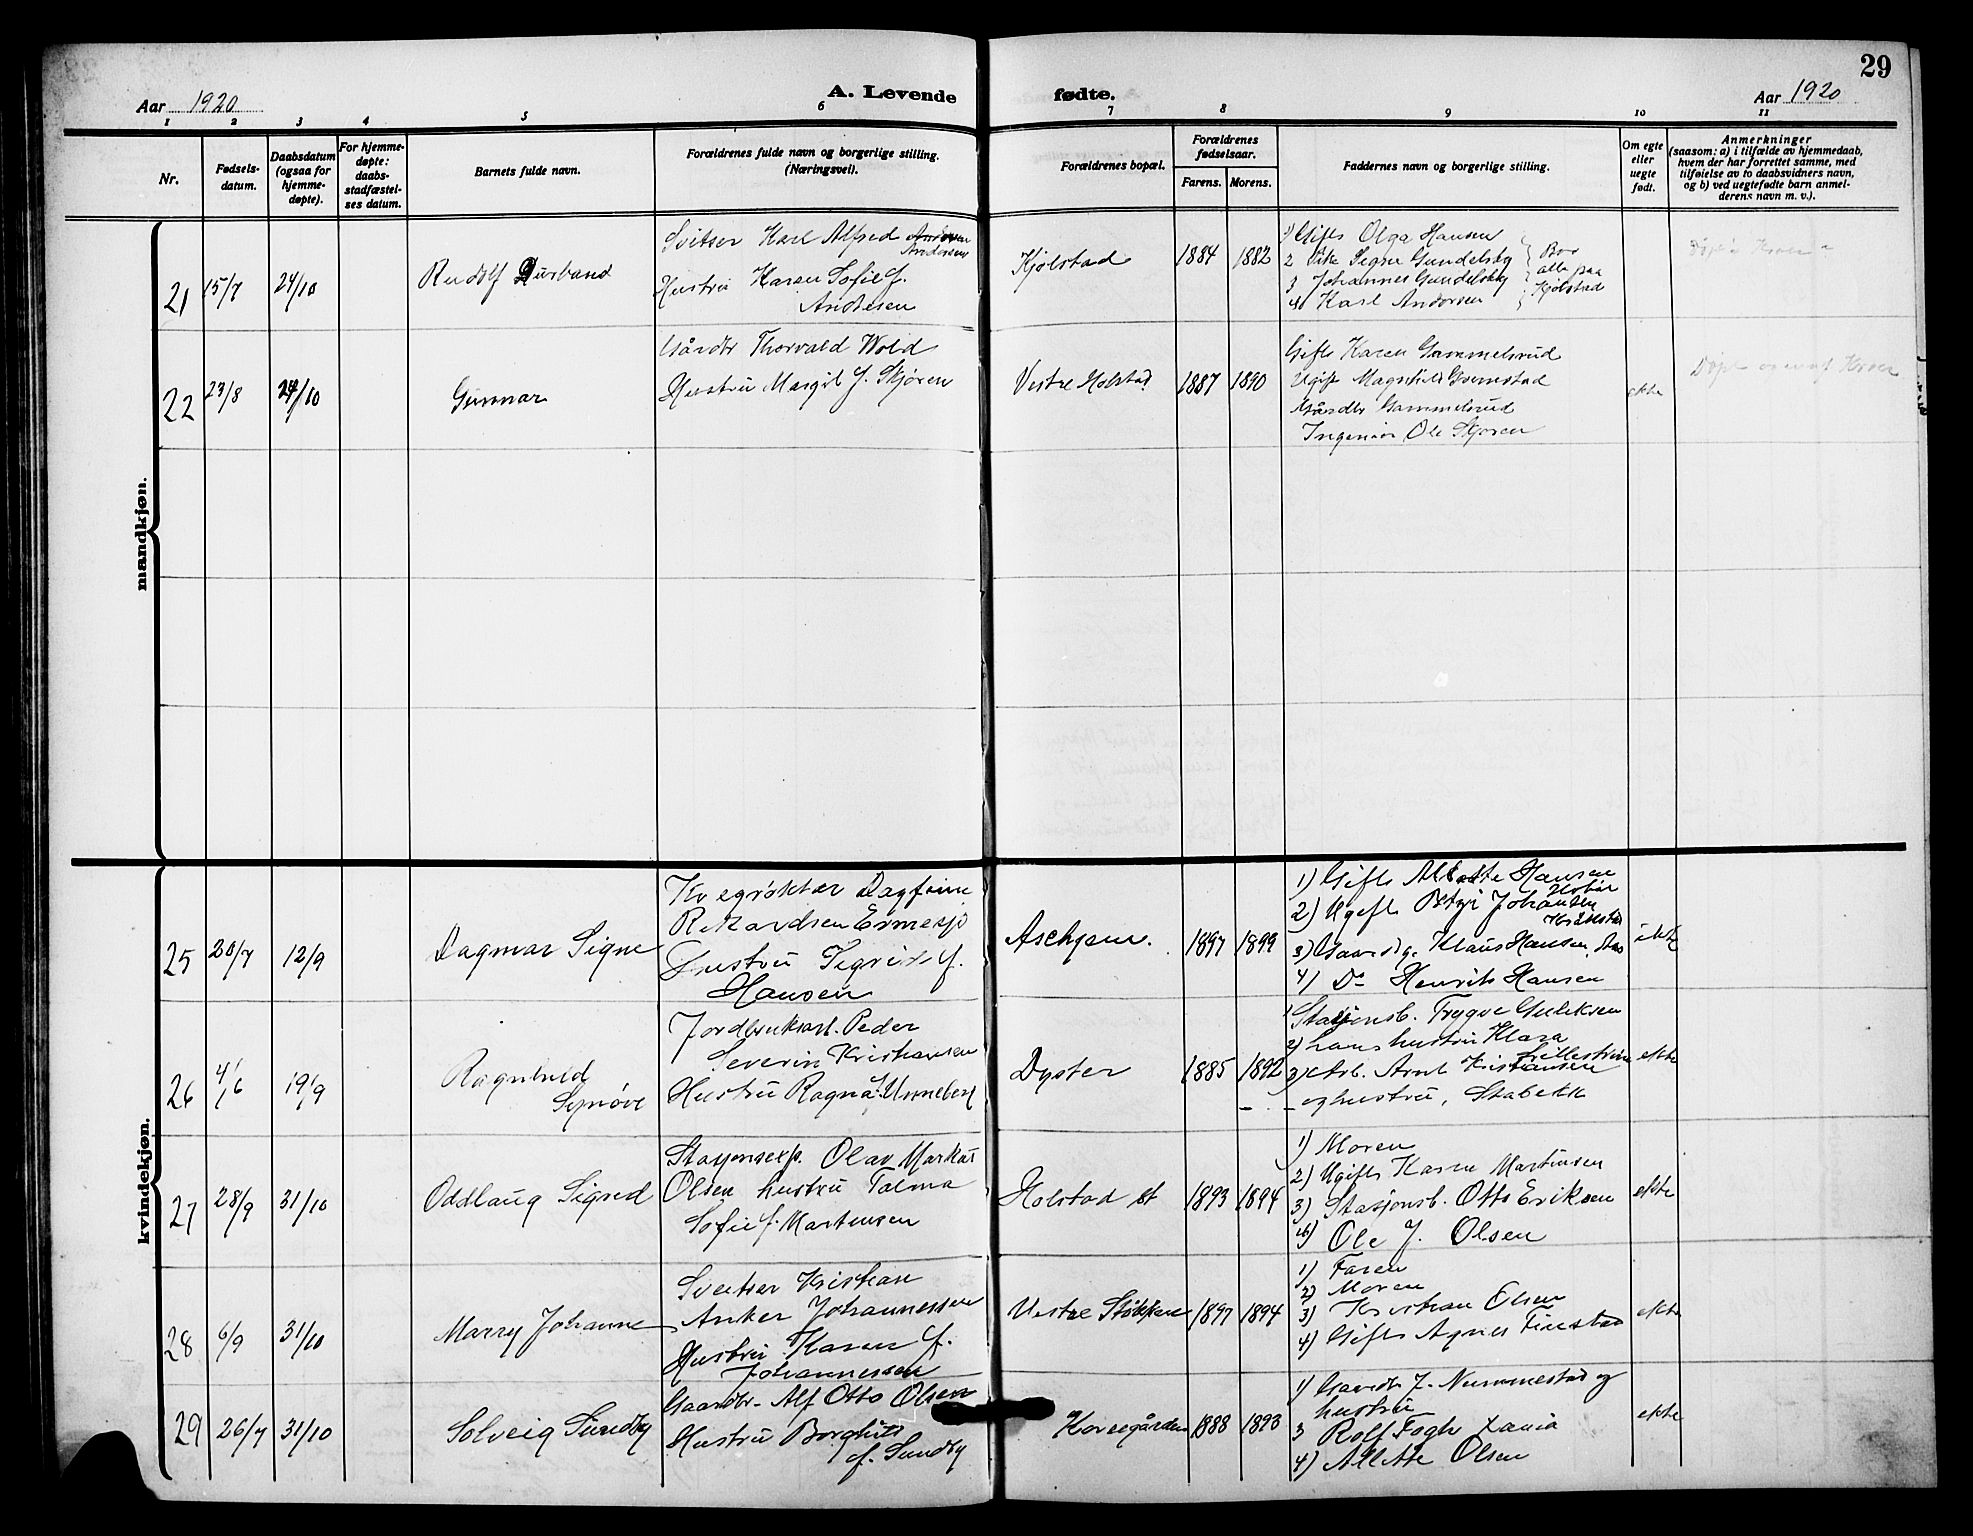 29
Aar 1920
A. Levende
fødte.
Aar 1920
1 2 3 4 5 6 7 8 9 10 11
Nr.
Fødsels-
datum.
Daabsdatum
(ogsaa for
hjemme-
døpte).
For hjemme-
døpte:
daabs-
stadfæstel-
ses datum.
Barnets fulde navn.
Forældrenes fulde navn og borgerlige stilling.
(Næringsvei).
Forældrenes bopæl.
Forældrenes
fødselsaar.
Farens. Morens.
Faddernes navn og borgerlige stilling.
Om egte
eller
uegte
født.
Anmerkninger
(saasom: a) i tilfælde av hjemmedaab,
hvem der har forrettet samme, med
tilføielse av to daabsvidners navn,
og b) ved uegtefødte barn anmel-
derens navn m. v.).
mandkjøn.
21 15/7 24/10
Rudolf Durband
Svitser Karl Alfred
Andersen
Hustru Karen Sofie f.
Andersen
Kjølstad
1884 1882
1) Gift Olga Hansen
2 Pike Signe Gundelsby
3 Johannes Gundelsby
4 Karl Andersen
Bor
alle paa
Kjølstad
22 23/8 24/10
Gunnar
Gårdbr Thorvald Wold
Hustru Margit f. Skjøren
Vestre Holstad
1887 1890
Gift Karen Gammelsrud
Ugift Magnhild
Gårdbr Gammelsrud
Ingeniør Ole Skjøren
ekte
kvindekjøn.
25 20/7 12/9
Dagmar Signe
Kvegrøkter Dagfinn
Rikardsen Ermesjø
Hustru Sigrid f.
Hansen
Aschjem.
1897 1899
1) Gift Hansen
2) Ugift Johansen
3) Klaus Hansen,
4) Do Henrik Hansen
ekte
26 4/6 19/9
Ragnhild
Synøve
Jordbruksarb. Peder
Severin Kristiansen
Hustru Ragna f. Unneberg
Dyster
1885 1892
1) Stasjonsb. Trygve Gulliksen
2) hans hustru Klara
Lillestrøm
3) Arb. Arnt Kristiansen
og hustru, Stabekk
ekte
27 28/9 31/10
Oddlaug Sigrid
Stasjonsexp. Olav Markus
Olsen hustru Talma
Sofie f. Martinsen
Holstad st
1893 1894
1) Moren
2) Ugift Karen Martinsen
3) Stasjonsb. Otto Eriksen
4) Ole J. Olsen
ekte
28 6/9 31/10
Marry Johanne
Sveitser Kristian
Anker Johannessen
Hustru Karen f.
Johannessen
Vestre Støkken
1897 1894
1) Faren
2) Moren
3) Kristian Olsen
4) Gift Agnes Finstad
ekte
29 26/7 31/10
Solveig Sundby
Gaardbr. Alf Otto Olsen
Hustru Borghild
f. Sundby
Korsegården
1888 1893
1) Gaardbr J. Nummestad og
hustru
3 Rolf Fogh
4) Alette Olsen
ekte